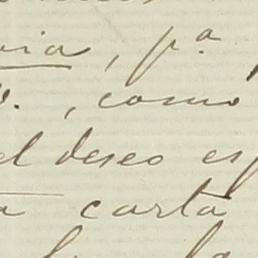 via, pª
, como
el deseo es
a carta